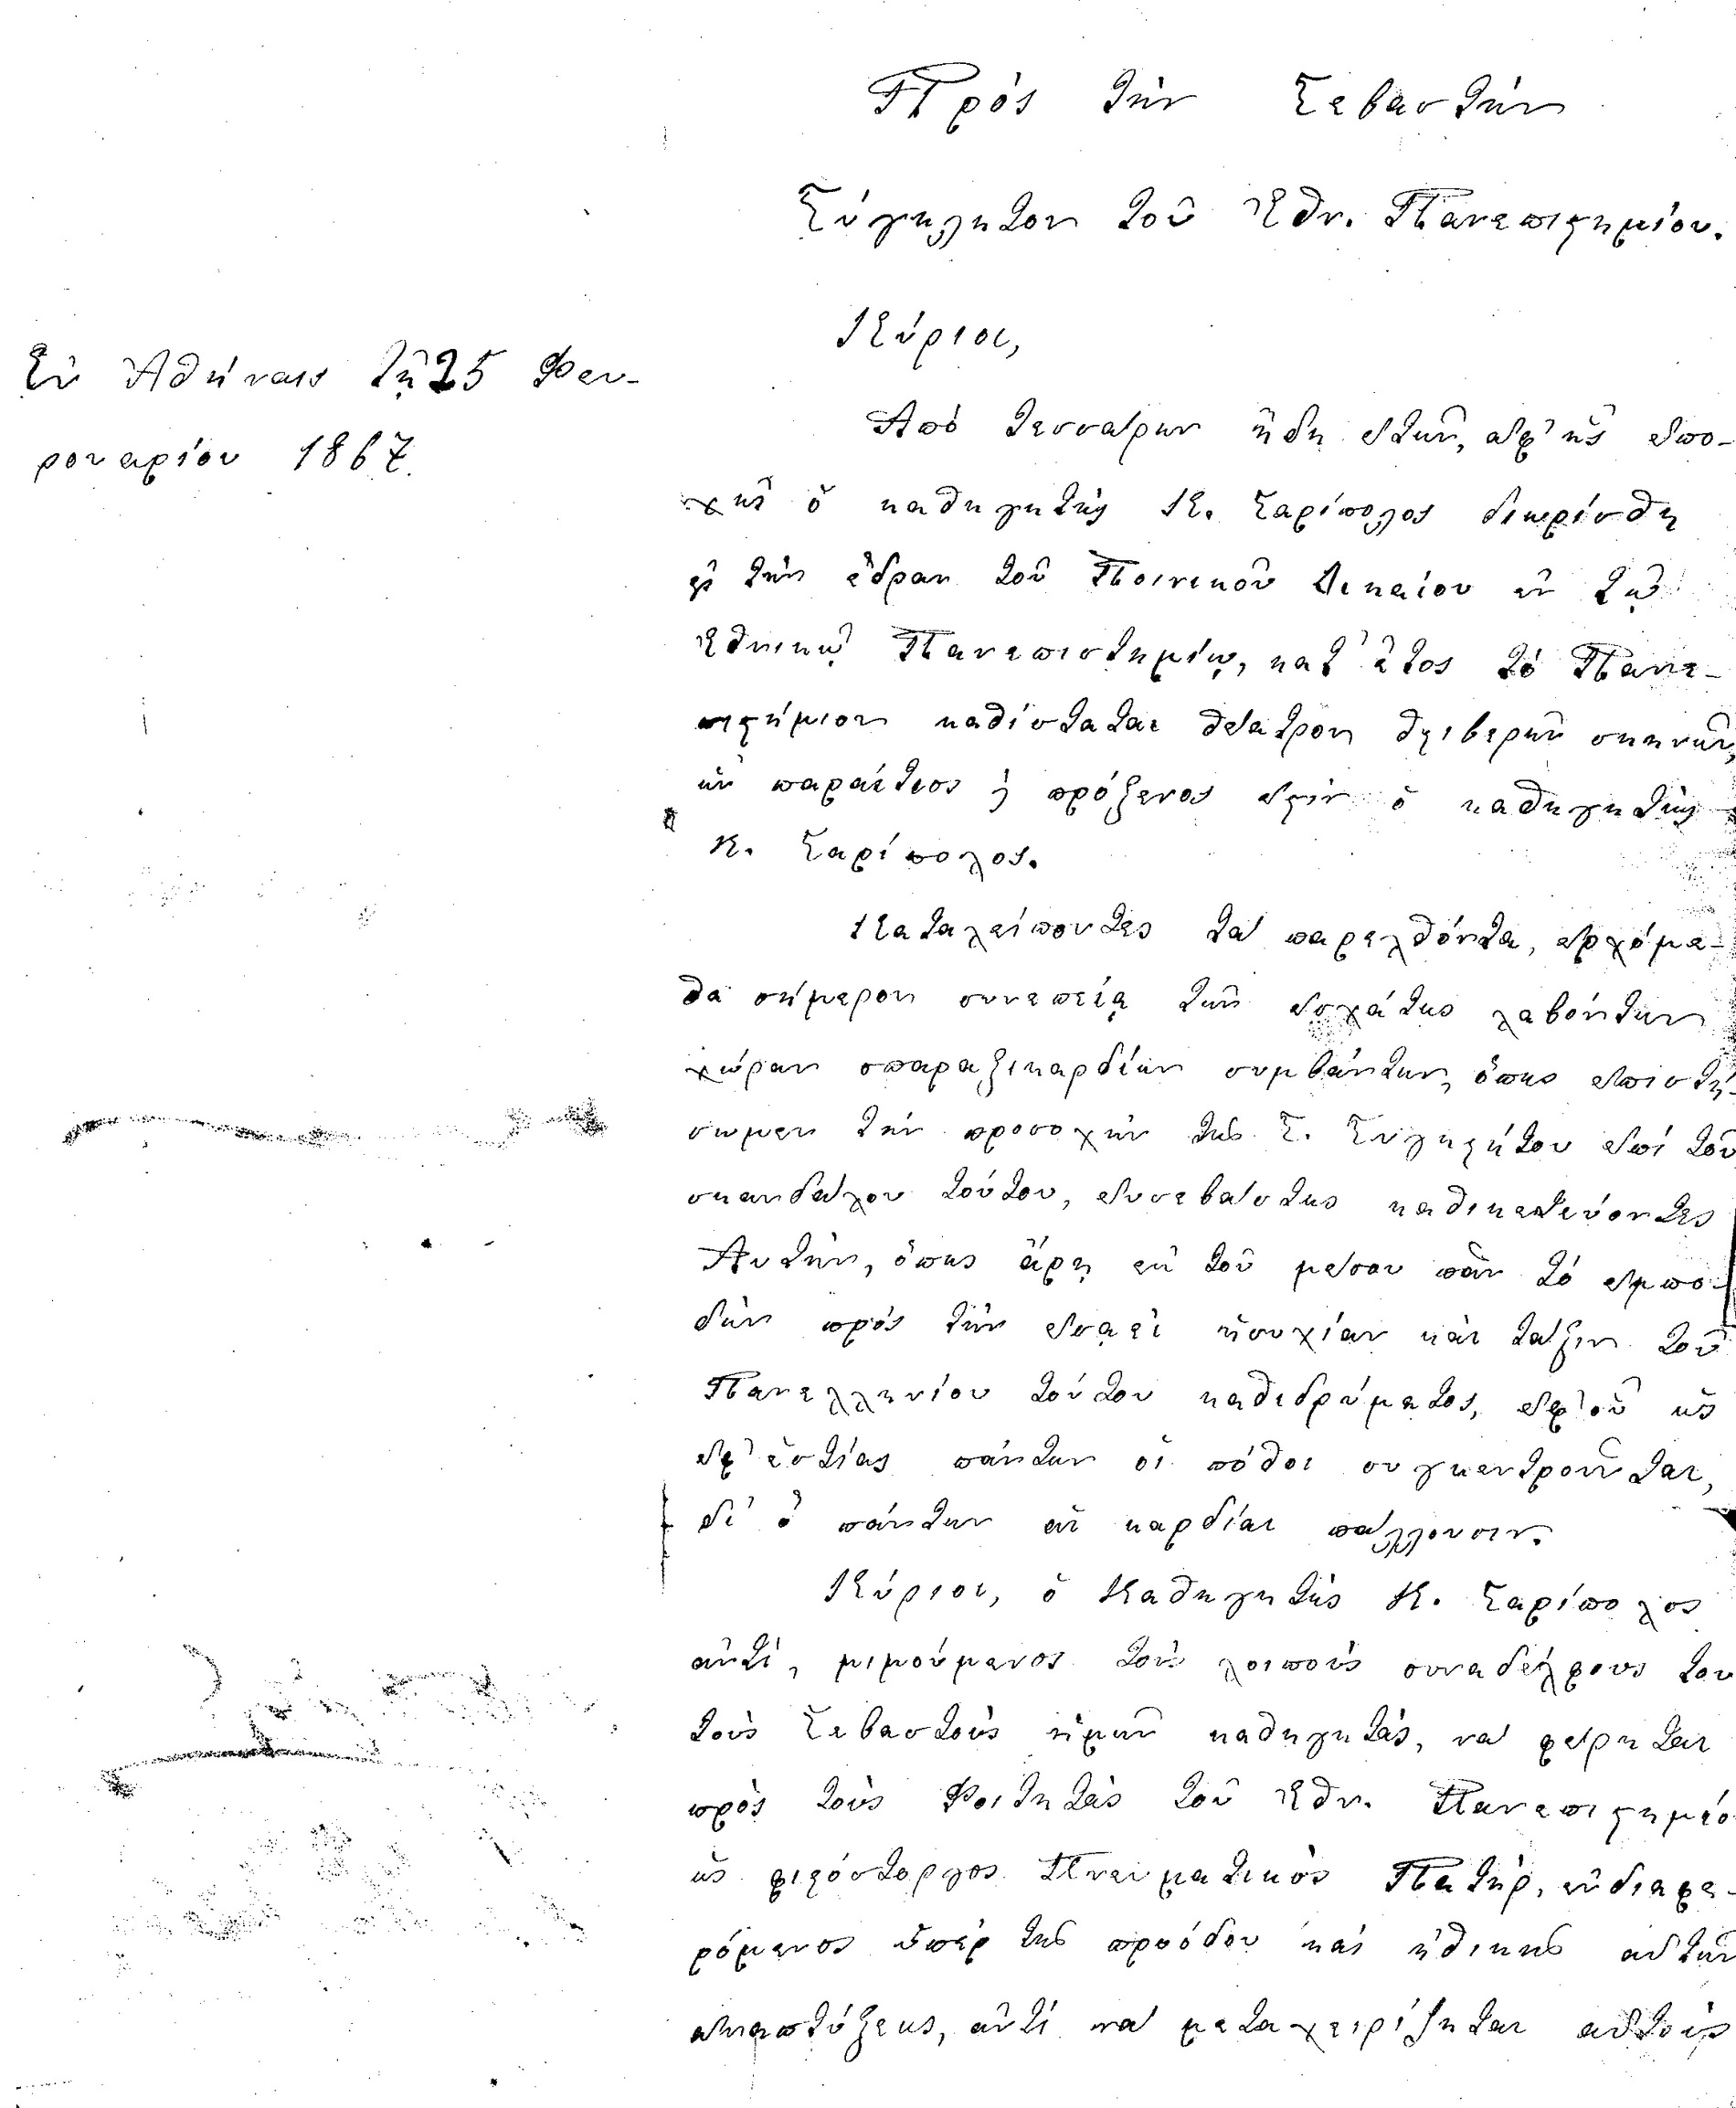 Πρὸς τὴν Σεβαστὴν
Σύγκλητον τοῦ Ἐθν. Πανεπιστημίου.
Κύριοι,
Ἐν Ἀθήναις τῇ 25 Φεβ-
ρουαρίου 1867.
Ἀπὸ τεσσάρων ἤδη ἐτῶν, ἀφ' ἧς ἐπο-
χῆς ὁ καθηγητὴς Κ. Σαρίπολος διωρίσθη
εἰς τὴν ἕδραν τοῦ Ποινικοῦ Δικαίου ἐν τῷ
Ἐθνικῷ Πανεπιστημίῳ, κατ' ἔτος τὸ Πανε-
πιστήμιον καθίσταται θέατρον θλιβερῶν σκηνῶν,
ὧν παραίτιος ἢ πρόξενος ἐστὶν ὁ καθηγητὴς
Κ. Σαρίπολος.
Καταλείποντες τὰ παρελθόντα, ἐρχόμε-
θα σήμερον συνεπείᾳ τῶν ἐσχάτως λαβόντων
χώραν σπαραξικαρδίων συμβάντων, ὅπως ἐπιστή-
σωμεν τὴν προσοχὴν τῆς Σ. Συγκλήτου ἐπὶ τοῦ
σκανδάλου τούτου, εὐσεβάστως καθικετεύοντες
Αὐτὴν, ὅπως ἄρῃ ἐκ τοῦ μέσου πᾶν τὸ ἐμπο-
δὼν πρὸς τὴν ἐσαεὶ ἡσυχίαν καὶ τάξιν τοῦ
Πανελληνίου τούτου καθιδρύματος, ἐφ' οὗ ὡς
ἐφ' ἑστίας πάντων οἱ πόθοι συγκεντροῦνται,
δι' ὃ πάντων αἱ καρδίαι πάλλουσιν.
Κύριοι, ὁ Καθηγητὴς Κ. Σαρίπολος
ἀντὶ, μιμούμενος τοὺς λοιποὺς συναδέλφους του
τοὺς Σεβαστοὺς ἡμῶν καθηγητὰς, νὰ φέρηται
πρὸς τοὺς Φοιτητὰς τοῦ Ἐθν. Πανεπιστημίο
ὡς φιλόστοργος Πνευματικὸς Πατὴρ, ἐνδιαφε-
ρόμενος ὑπὲρ τῆς προόδου καὶ ἠθικῆς αὐτῶν
ἀναπτύξεως, ἀντὶ νὰ μεταχειρίζηται αὐτοὺς